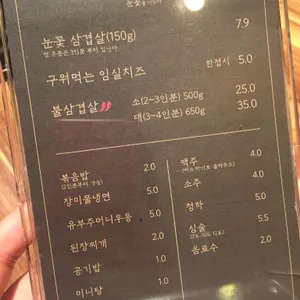 눈꽃 삼겹살(150g) 7.9
첫 주문은 3인분 부터 입니다.
구워먹는 임실치즈 한접시 5.0
불삼겹살 소(2~3인분) 500g 25.0
대(3~4인분) 650g 35.0
볶음밥 2.0
(2인분부터 가능)
장미물냉면 5.0
유부주머니우동 5.0
된장찌개 2.0
공기밥 1.0
미니탕 1.0
맥주 4.0
소주 4.0
청하 5.0
심술 5.5
음료수 2.0